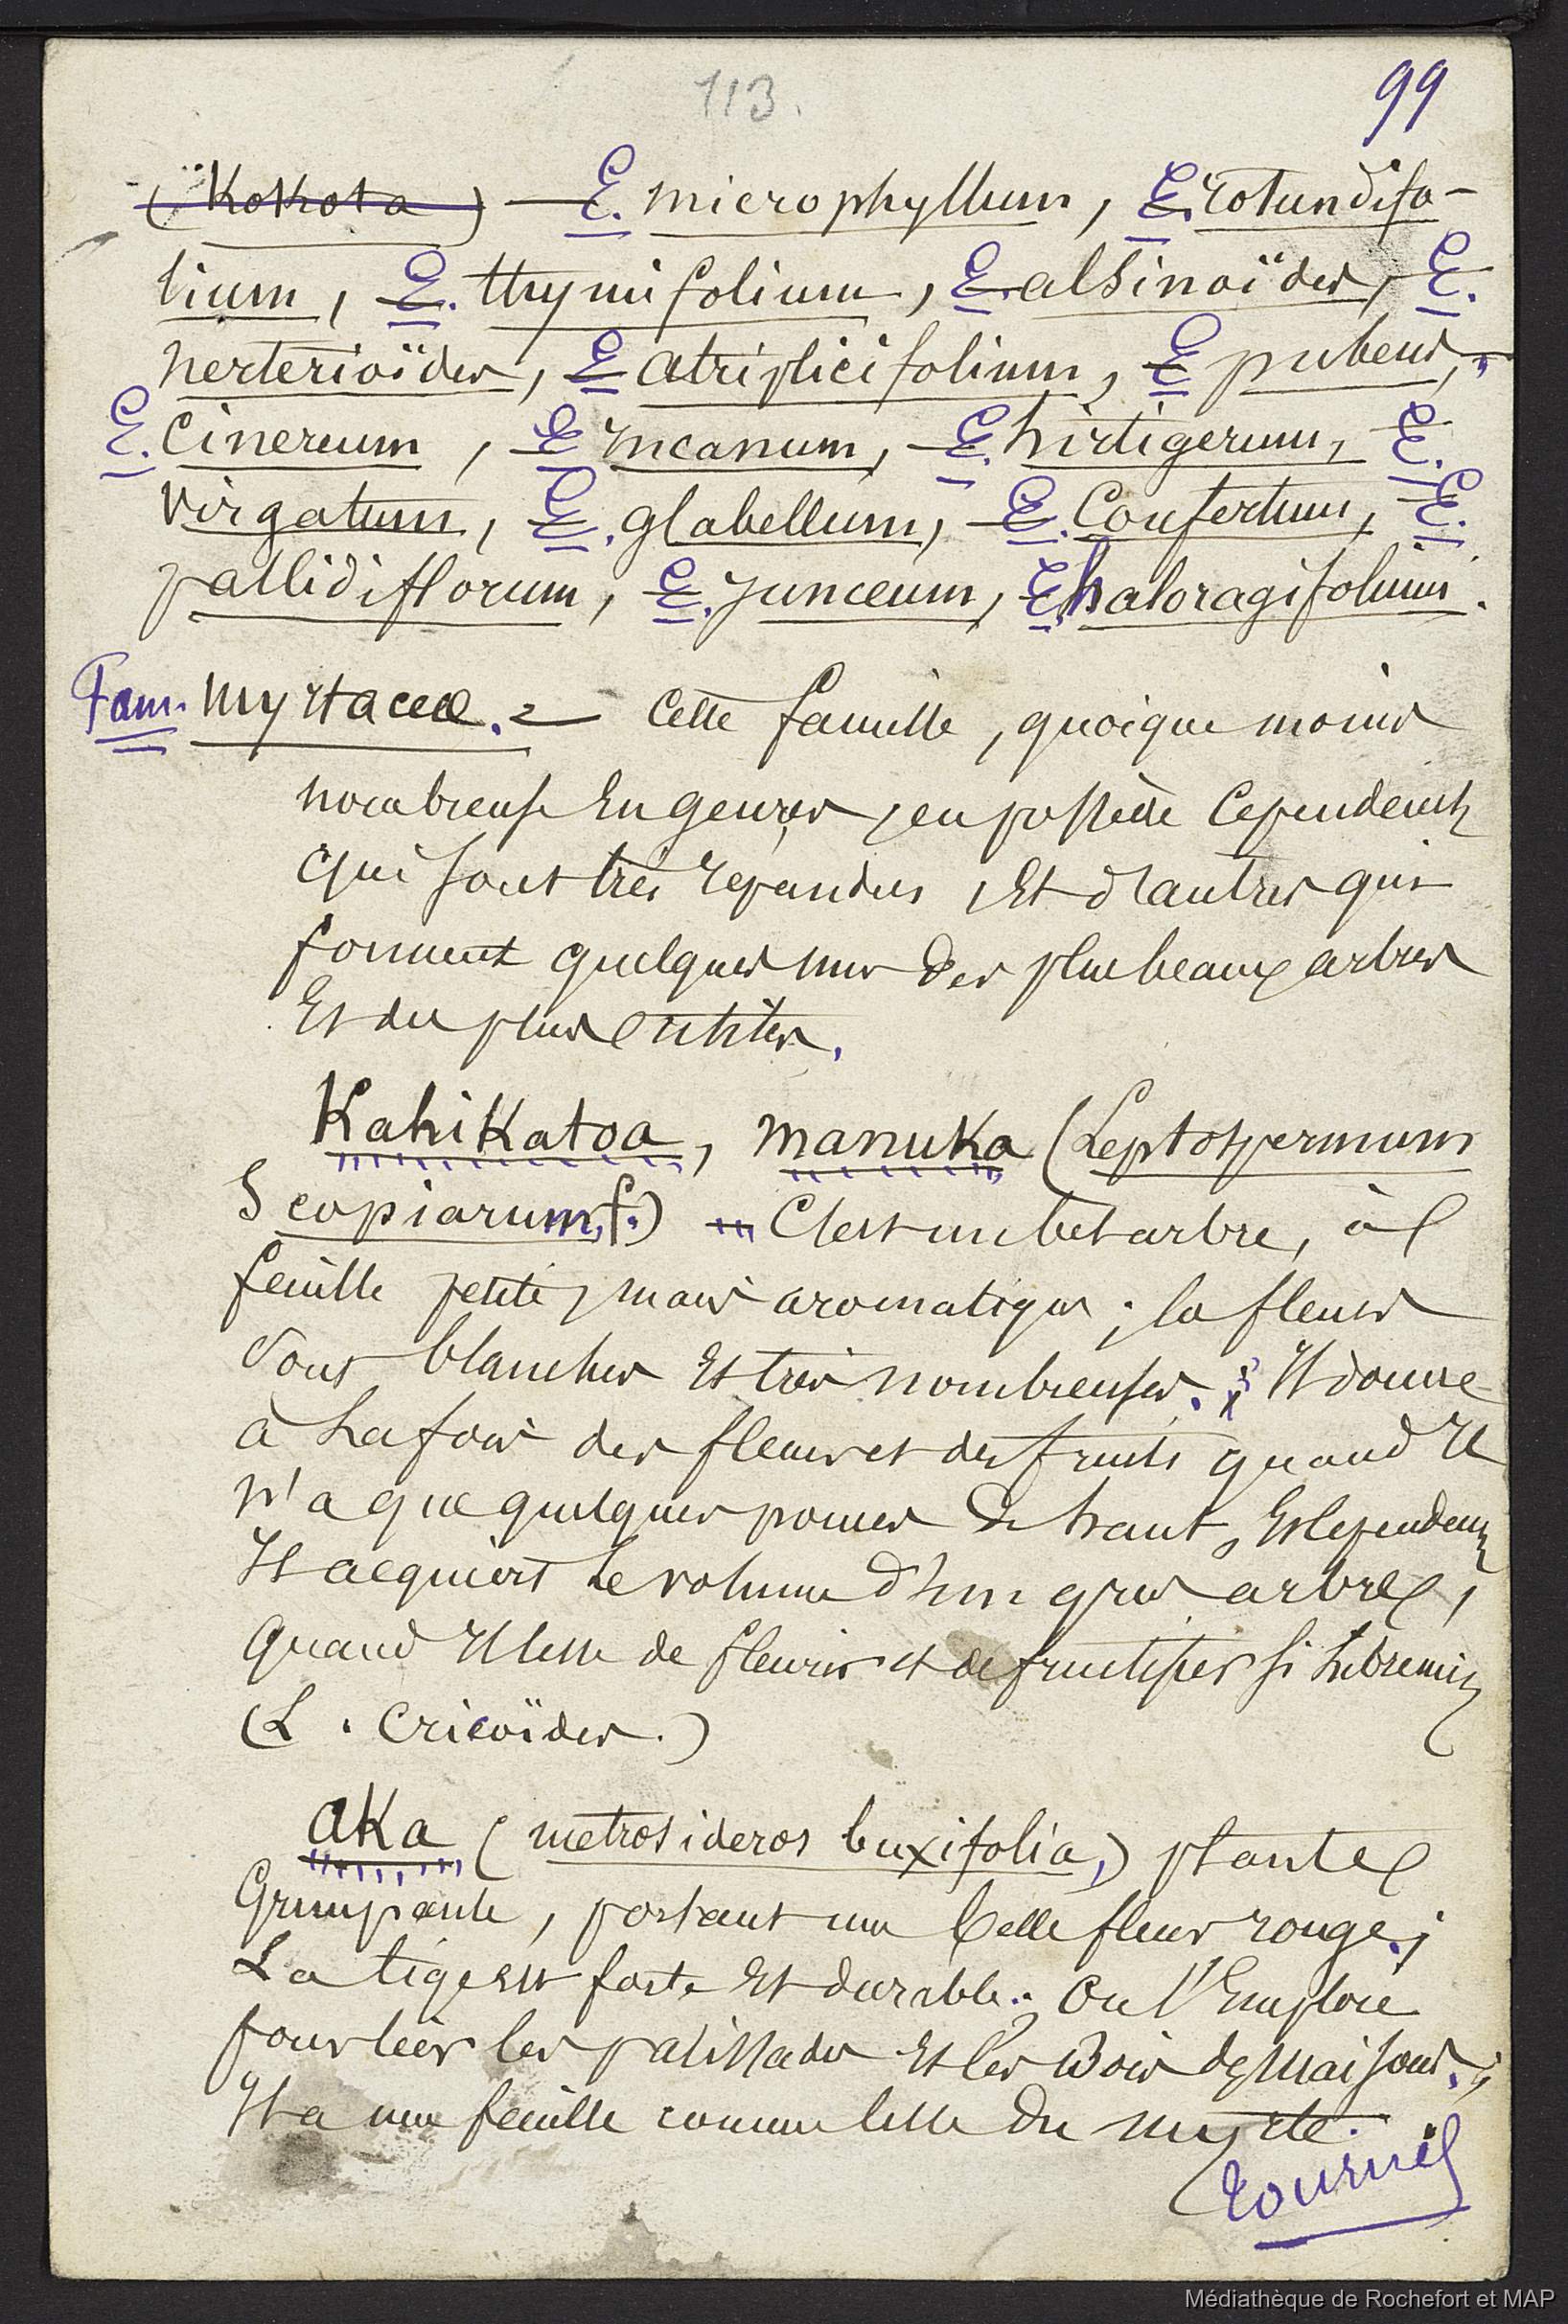 113.
99
(Kokota) — E. microphyllum, E. rotundifo-
lium, E. thymifolium, E. alsinoïdes, E.
nerterioïdes, E atriplicifolium, E pubens,
E. Cinereum, E incanum, E. hirtigerum, E.
virgatum, E. glabellum, E. Confertum, E.
pallidiflorum, E. junceum, E haloragifolium.
Fam. Myrtaceæ. — Cette famille, quoique moins
nombreuse En genres, en possède Cependant
qui sont très repandus, Et d'autres qui
forment quelques uns des plus beaux arbres
Et des plus utiles.
Kahikatoa, manuka (Leptospermum
Scopiarum, f.) — C'est un bel arbre, à
feuille petite, mais aromatique; la fleurs
sont blanches Et très nombreuses. ; Il donne
à la fois des fleurs et des fruits quand Il
n'a que quelques pouces de haut, Et Cependant
Il acquiert le volume d'un gros arbre,
quand Il Cesse de fleurir et de fructifier si
(L. Cricoïdes.)
aka (metrosideros buxifolia,) plante
Grimpante, portant une belle fleur rouge;
La tige est forte Et durable; On l'Emploie
pour lier les palissades Et les Bois de maisons.;
Il a une feuille comme Celle du myrte.
tournes
Médiathèque de Rochefort et MAP